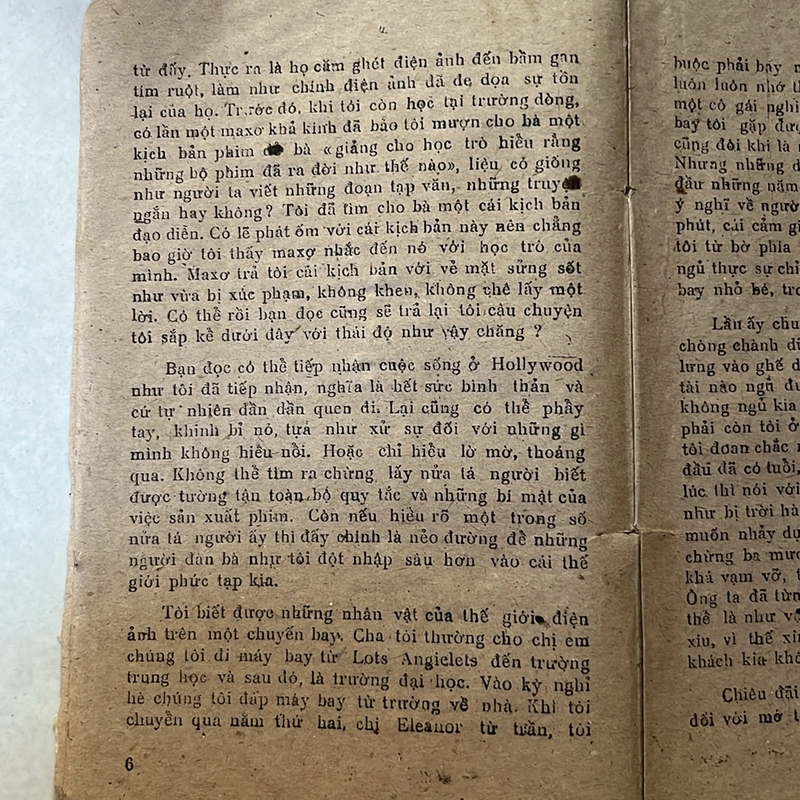 từ đấy. Thực ra là họ căm ghét điện ảnh đến bầm gan
tím ruột, làm như chính điện ảnh đã đe dọa sự tồn
lại của họ. Trước đó, khi tôi còn học tại trường dòng,
có lần một maxơ khả kính đã bảo tôi mượn cho bà một
kịch bản phim để bà «giảng cho học trò hiểu rằng
những bộ phim đã ra đời như thế nào», liệu có giống
như người ta viết những đoạn tạp văn, những truyện
ngắn hay không? Tôi đã tìm cho bà một cái kịch bản
đạo diễn. Có lẽ phát ốm với cái kịch bản này nên chẳng
bao giờ tôi thấy maxơ nhắc đến nó với học trò của
mình. Maxơ trả tôi cái kịch bản với vẻ mặt sửng sốt
như vừa bị xúc phạm, không khen, không chê lấy một
lời. Có thể rồi bạn đọc cũng sẽ trả lại tôi câu chuyện
tôi sắp kể dưới đây với thái độ như vậy chăng ?
Bạn đọc có thể tiếp nhận cuộc sống ở Hollywood
như tôi đã tiếp nhận, nghĩa là hết sức bình thản và
cứ tự nhiên dần dần quen đi. Lại cũng có thể phẩy
tay, khinh bỉ nó, tựa như xử sự đối với những gì
mình không hiểu nổi. Hoặc chỉ hiểu lờ mờ, thoáng
qua. Không thể tìm ra chừng lấy nửa tá người biết
được tường tận toàn bộ quy tắc và những bí mật của
việc sản xuất phim. Còn nếu hiểu rõ một trong số
nửa tá người ấy thì đấy chính là nẻo đường để những
người đàn bà như tôi đột nhập sâu hơn vào cái thế
giới phức tạp kia.
Tôi biết được những nhân vật của thế giới điện
ảnh trên một chuyến bay. Cha tôi thường cho chị em
chúng tôi đi máy bay từ Lots Angielets đến trường
trung học và sau đó, là trường đại học. Vào kỳ nghỉ
hè chúng tôi đáp máy bay từ trường về nhà. Khi tôi
chuyển qua năm thứ hai, chị Eleanor từ trần, tôi
6
buộc phải bay
luôn luôn nhớ
một cô gái
bay tôi gặp
cũng đôi khi là
Nhưng những
đầu những năm
ý nghĩ về người
phút, cái cảm
tôi từ bờ phía
ngủ thực sự
bay nhỏ bé,
Lần ấy
chòng chành
lưng vào ghế
tài nào ngủ
không ngủ kia
phải còn tôi ở
tôi đoan chắc
đầu đã có tuổi,
lúc thì nói với
như bị trời
muốn nhảy
chừng ba
khá vạm vỡ,
Ông ta đã
thể là như
xiu, vì thế
khách kia
Chiêu đãi
đối với mớ